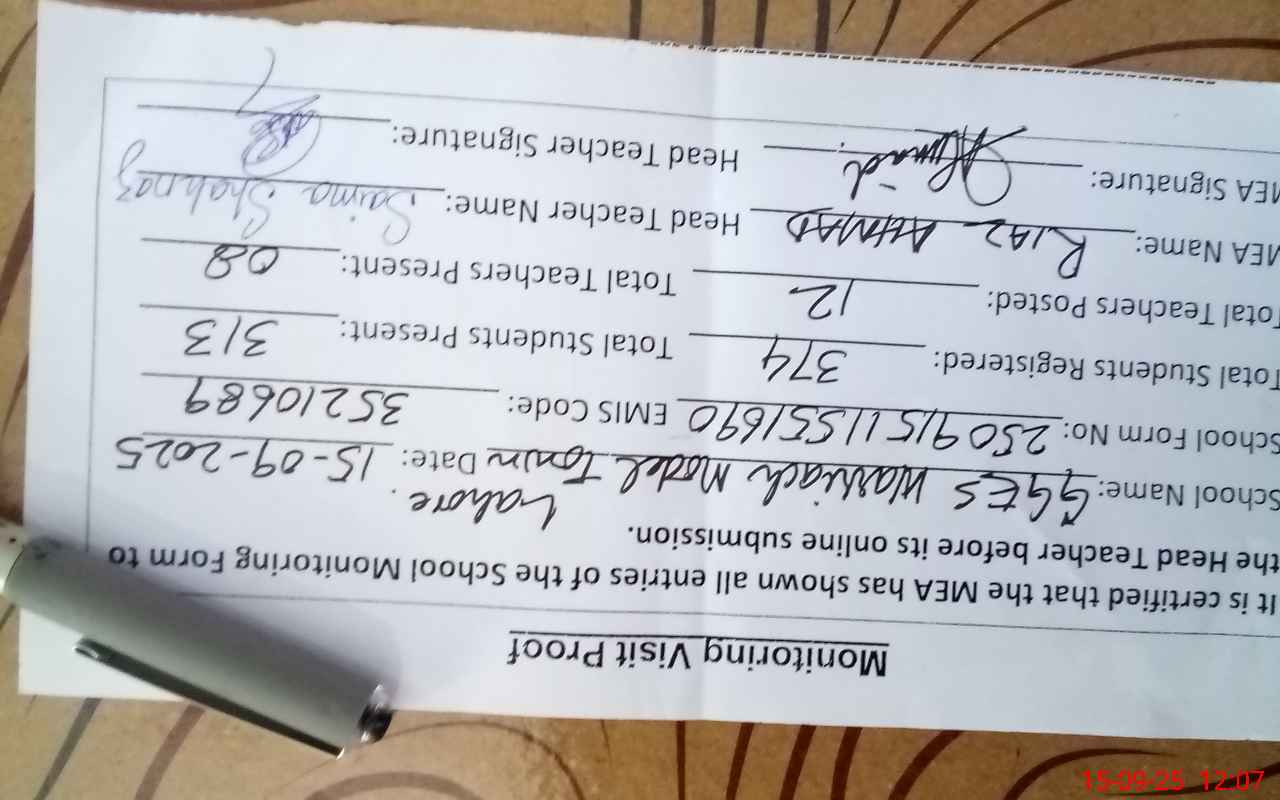 Monitoring Visit Proof
It is certified that the MEA has shown all entries of the School Monitoring Form to
the Head Teacher before its online submission.
School Name: GGES Warriach Model Town Lahore. Date: 15-09-2025
School Form No: 25091511551690 EMIS Code: 35210689
Total Students Registered: 374 Total Students Present: 313
Total Teachers Posted: 12 Total Teachers Present: 08
MEA Name: RIAZ AHMAD Head Teacher Name: Saima Shahnaz
MEA Signature: Ahmad Head Teacher Signature:
15-09-25 12:07